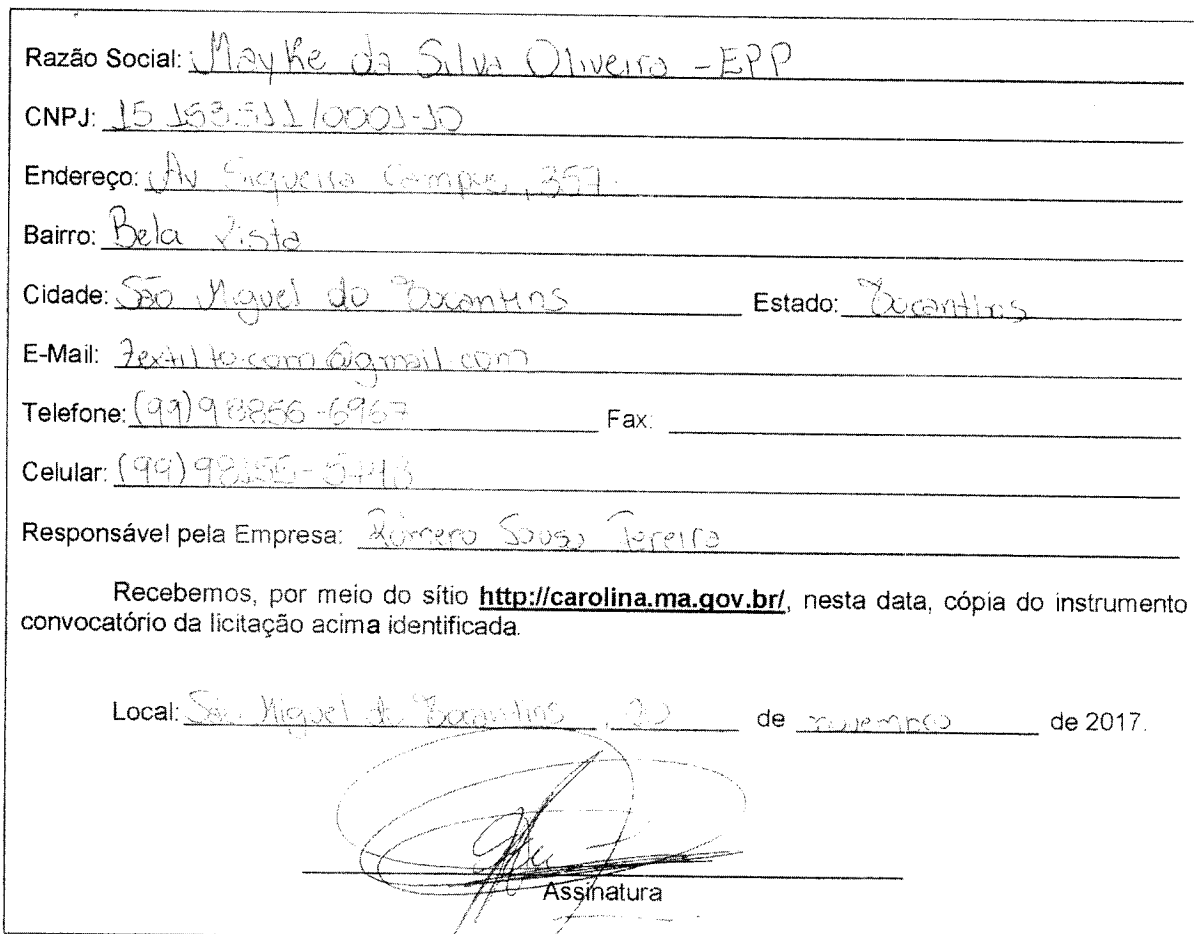 Razão Social: Mayke da Silva Oliveira - EPP
CNPJ: 15 153.511/0001-10
Endereço: Av Siqueira Campos, 357
Bairro: Bela Vista
Cidade: São Miguel do Tocantins Estado: Tocantins
E-Mail: textilto.com@gmail.com
Telefone: (99) 98856-6967 Fax:
Celular: (99) 98155-5748
Responsável pela Empresa: Rômero Sousa Pereira
Recebemos, por meio do sítio http://carolina.ma.gov.br/, nesta data, cópia do instrumento
convocatório da licitação acima identificada.
Local: São Miguel do Tocantins, 20 de novembro de 2017.
Assinatura